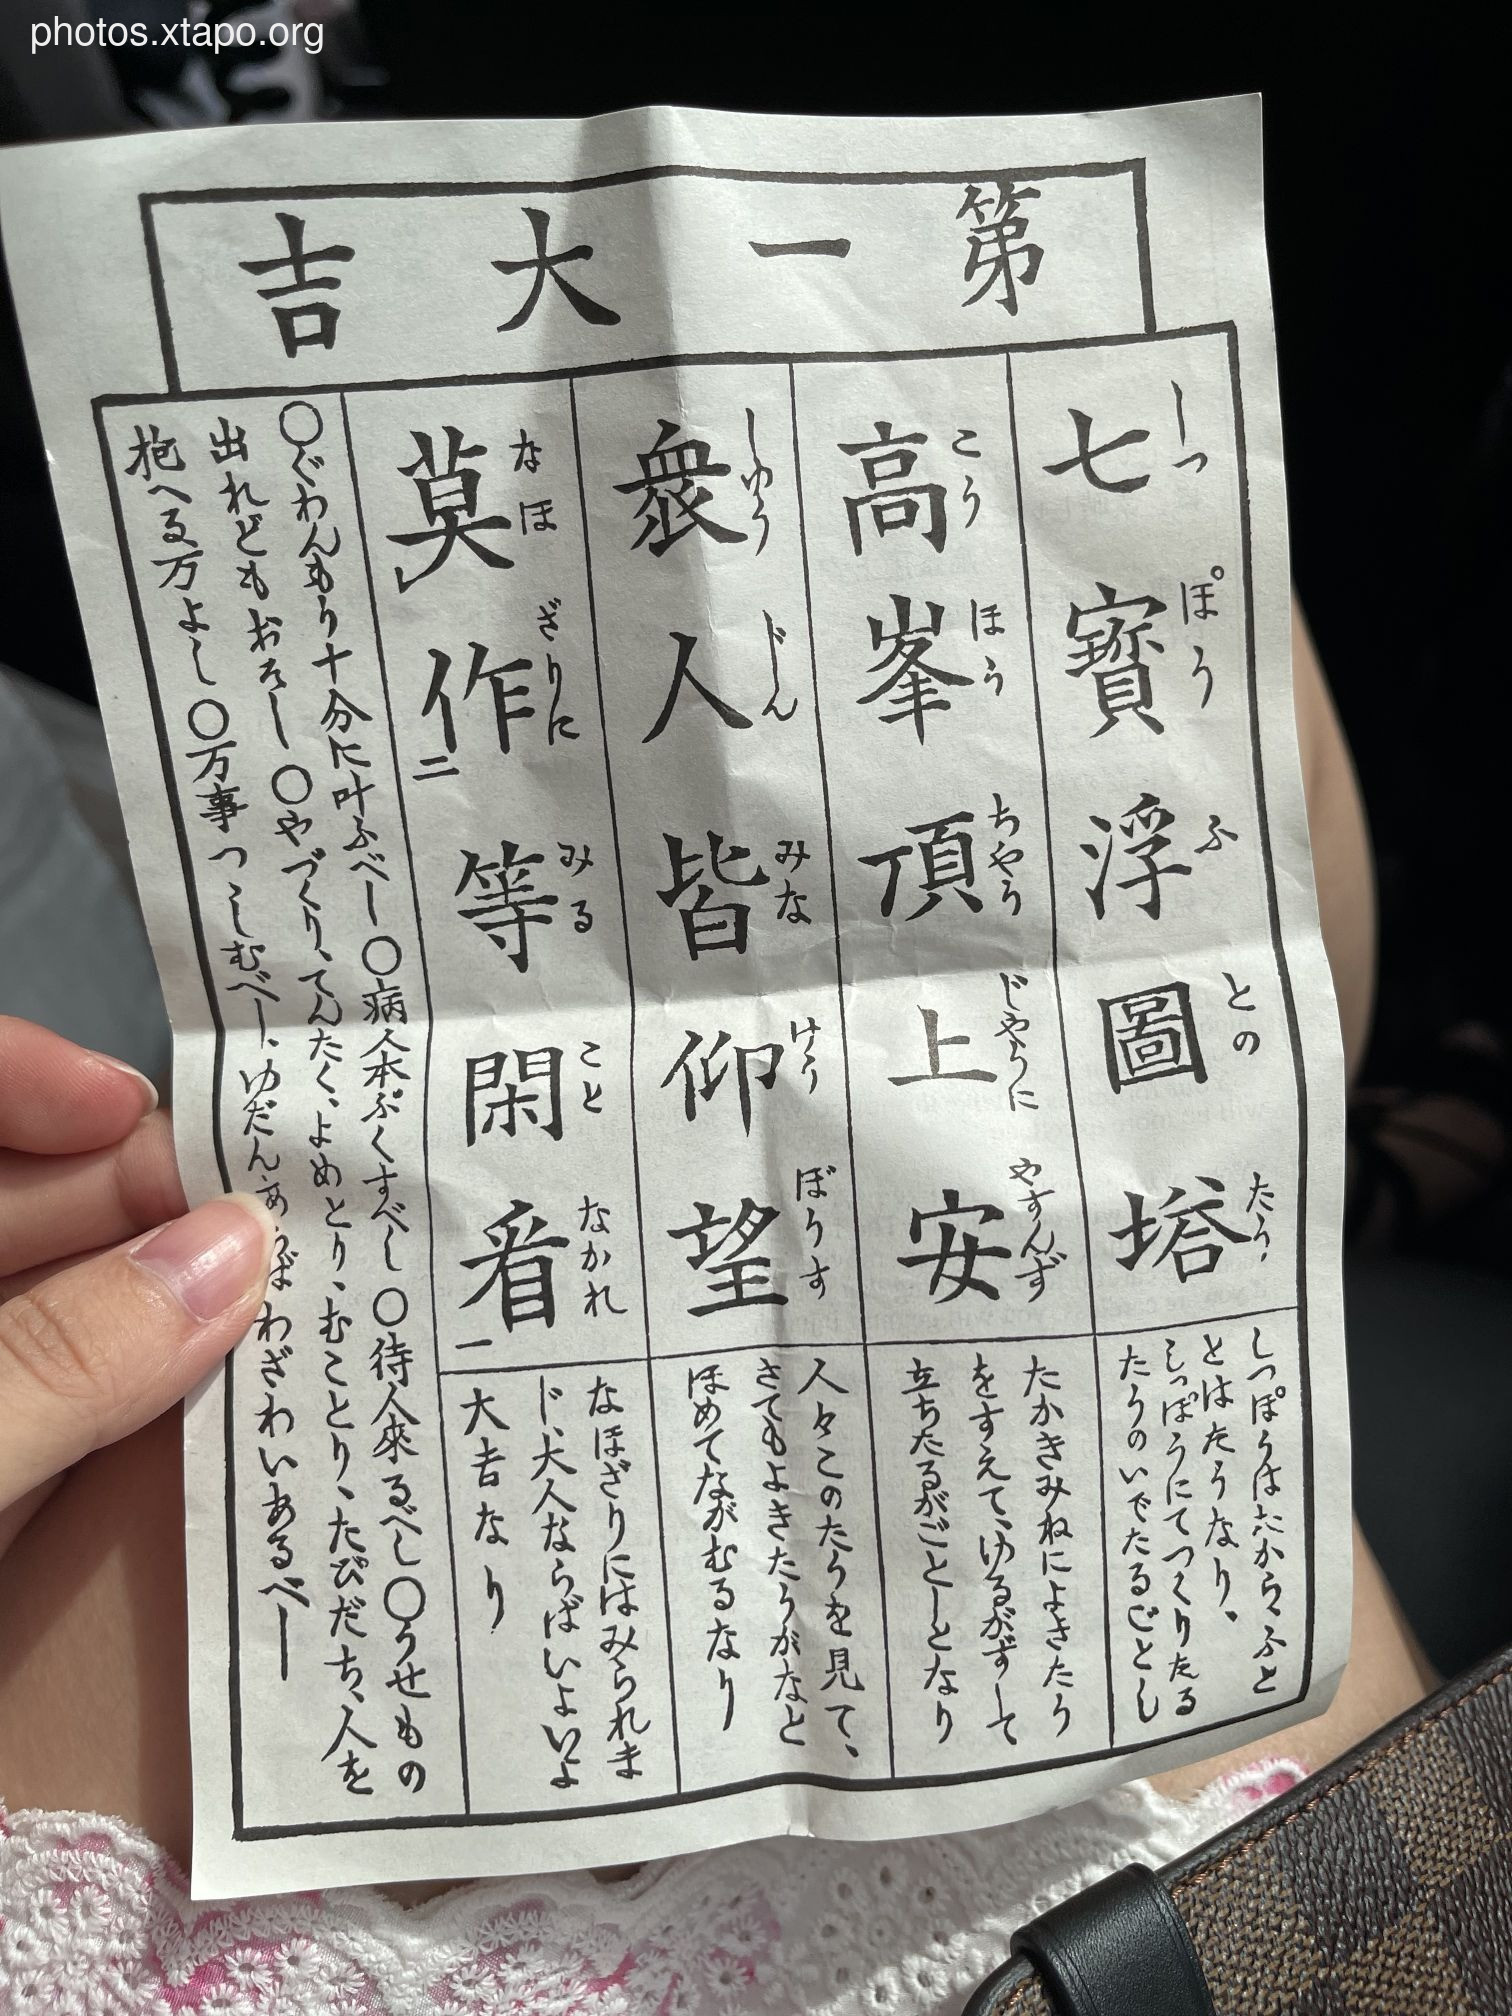 photos.xtapo.org
第一大吉
しつ ぽう ふ との たう
七寶浮圖塔
しつぽうはたから、ふと
とはたうなり。
しつぽうにてつくりたる
たうのいでたるごとし
こう ほう ちやう じやうに やすんず
高峯頂上安
たかきみねによきたう
をすえて、ゆるがずして
立ちたるがごとしとなり
しゆう じん みな けう ぼうす
衆人皆仰望
人々このたうを見て、
さてもよきたうがなと
ほめてながむるなり
なほ ざりに みる こと なかれ
莫レ作二等閑看一
なほざりにはみられま
じ、大人ならばいよいよ
大吉なり
〇ぐわんもう十分に叶ふべし〇病人本ぷくすべし〇待人來るべし〇うせもの
出れどもおそし〇やづくり、てんたく、よめとり、むことり、たびだち、人を
抱へる万よし〇万事つゝしむべし、ゆだんあらばわざわいあるべし